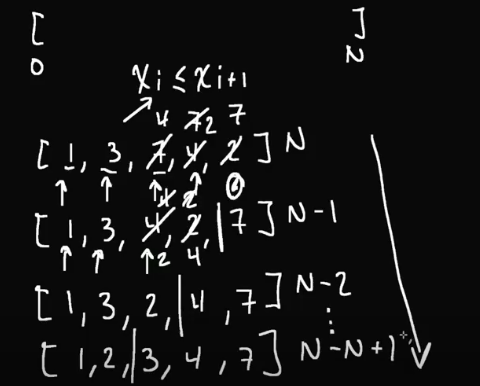 [ ]
0 N
xᵢ ≤ xᵢ₊₁
4 7 2 7
[ 1, 3, 7, 4, 2 ] N
4 2
[ 1, 3, 4, 2, | 7 ] N-1
2 4
[ 1, 3, 2, | 4, 7 ] N-2
⋮
[ 1, 2, | 3, 4, 7 ] N-N+1